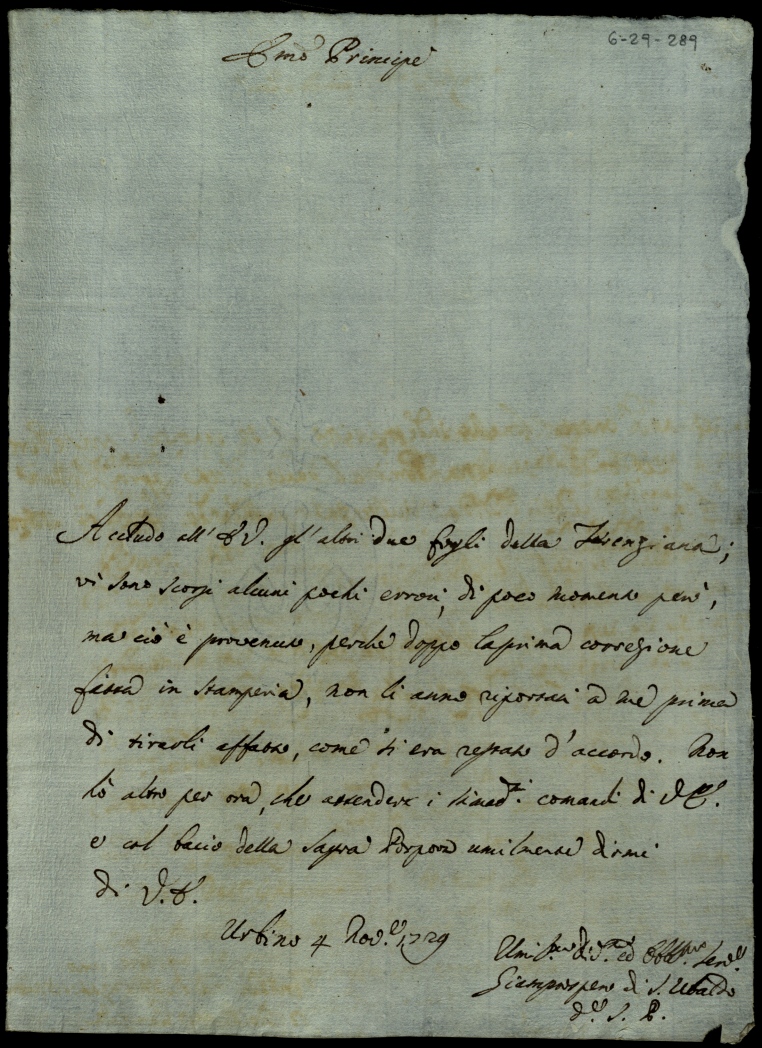 6-29-289
Emo Principe
Accludo all' E V. gl' altri due fogli della
vi sono scorsi alcuni pochi errori, di poco momento però,
ma ciò è provenuto, perche doppo la prima correzione
fatta in stamperia, non li anno riportati à me prima
di tirarli affatto, come si era restato d'accordo. Non
hò altro per ora, che attendere i stimadmi comandi di V E.
e col bacio della Sagra Porpora umilmente dirmi
di V. E.
Urbino 4 Nov.e 1729
Umi.mo ed Obbl.mo Serv.e
Giamprospero di S. Ubaldo
d.e S. P.